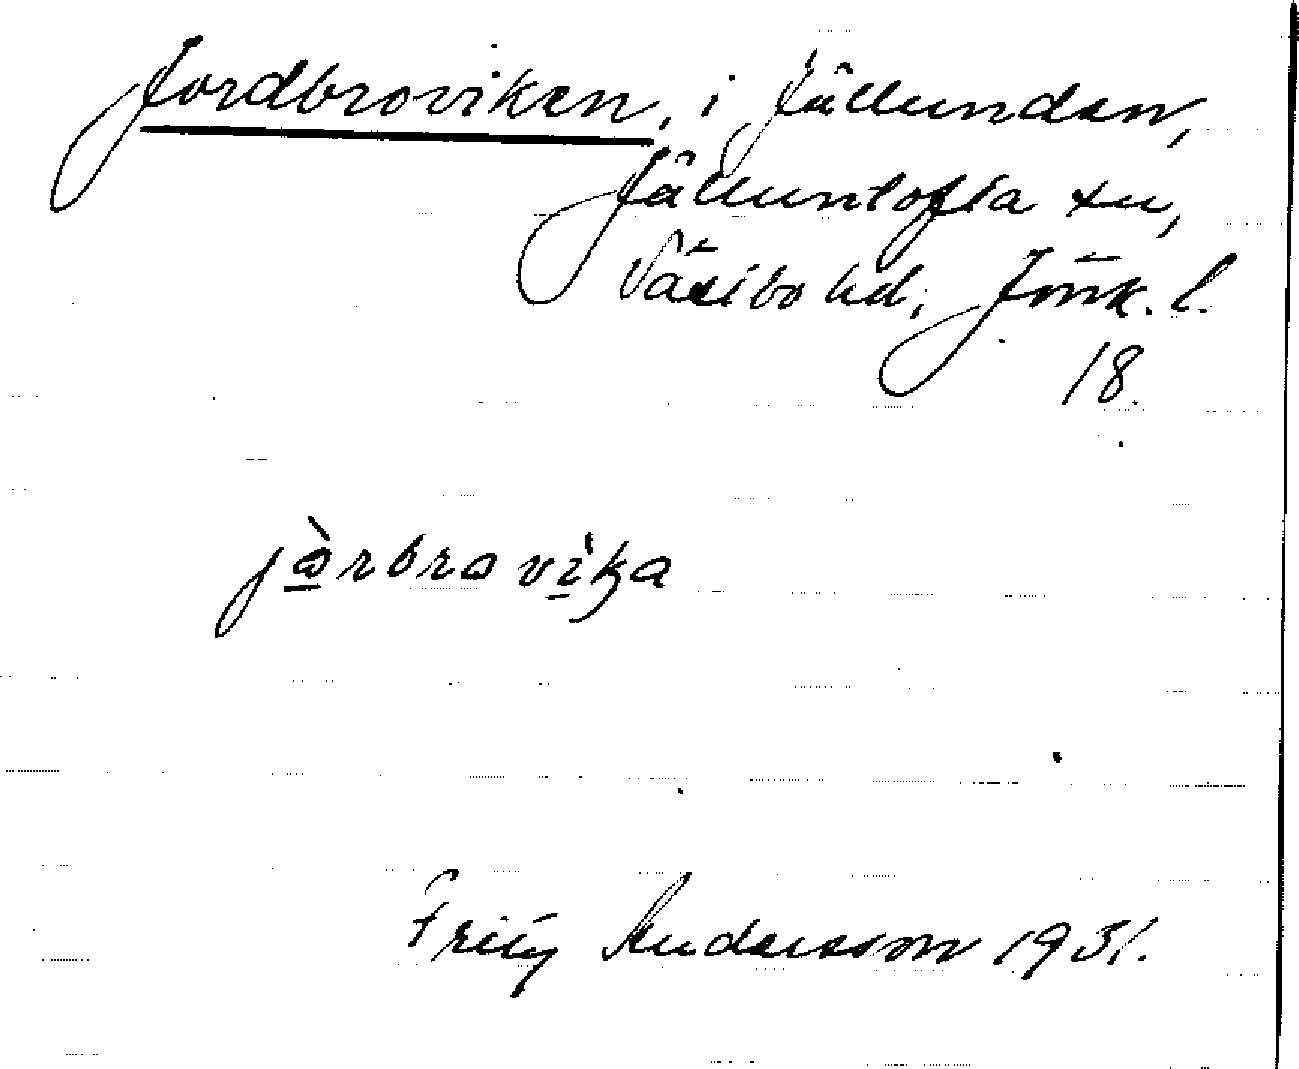 Jordbroviken, i Jällunden,
Jälluntofta sn,
Västbo hd, Jönk. l.
18.
jòrbravika
Fritz Andersson 1931.